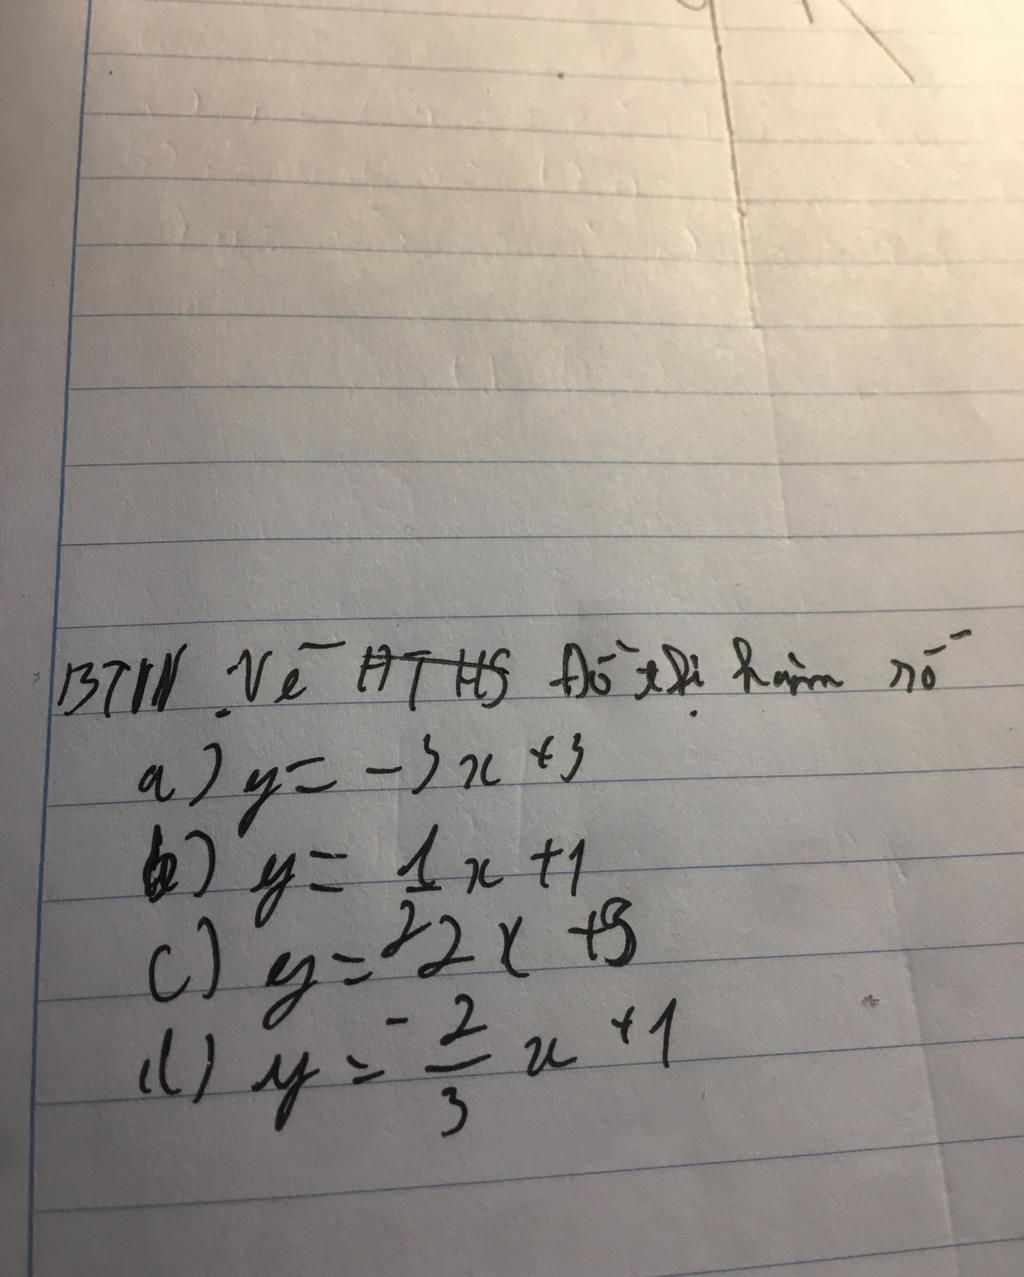 BTVN Vẽ ĐTHS Đồ thị hàm số
a) y = -3x + 3
b) y = 1/2 x + 1
c) y = 2x + 3
d) y = -2/3 x + 1